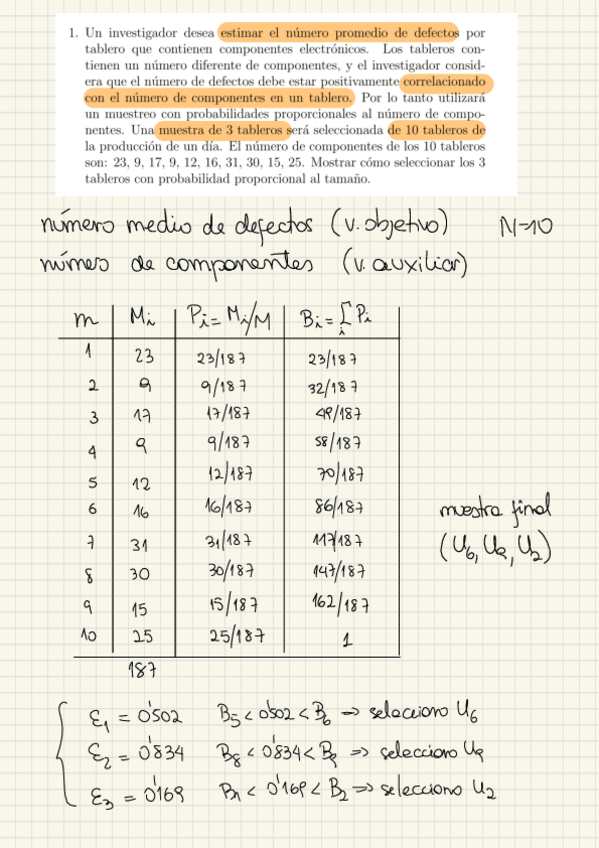 1. Un investigador desea estimar el número promedio de defectos por
tablero que contienen componentes electrónicos. Los tableros con-
tienen un número diferente de componentes, y el investigador consid-
era que el número de defectos debe estar positivamente correlacionado
con el número de componentes en un tablero. Por lo tanto utilizará
un muestreo con probabilidades proporcionales al número de compo-
nentes. Una muestra de 3 tableros será seleccionada de 10 tableros de
la producción de un día. El número de componentes de los 10 tableros
son: 23, 9, 17, 9, 12, 16, 31, 30, 15, 25. Mostrar cómo seleccionar los 3
tableros con probabilidad proporcional al tamaño.
número medio de defectos (v. objetivo) N=10
número de componentes (v. auxiliar)
m Mi Pi = Mi/M Bi = Σi Pi
1 23 23/187 23/187
2 9 9/187 32/187
3 17 17/187 49/187
4 9 9/187 58/187
5 12 12/187 70/187
6 16 16/187 86/187
7 31 31/187 117/187
8 30 30/187 147/187
9 15 15/187 162/187
10 25 25/187 1
187
muestra final
(U6, U9, U2)
ε1 = 0'502 B5 < 0'502 < B6 => selecciono U6
ε2 = 0'834 B8 < 0'834 < B9 => selecciono U9
ε3 = 0'169 B1 < 0'169 < B2 => selecciono U2